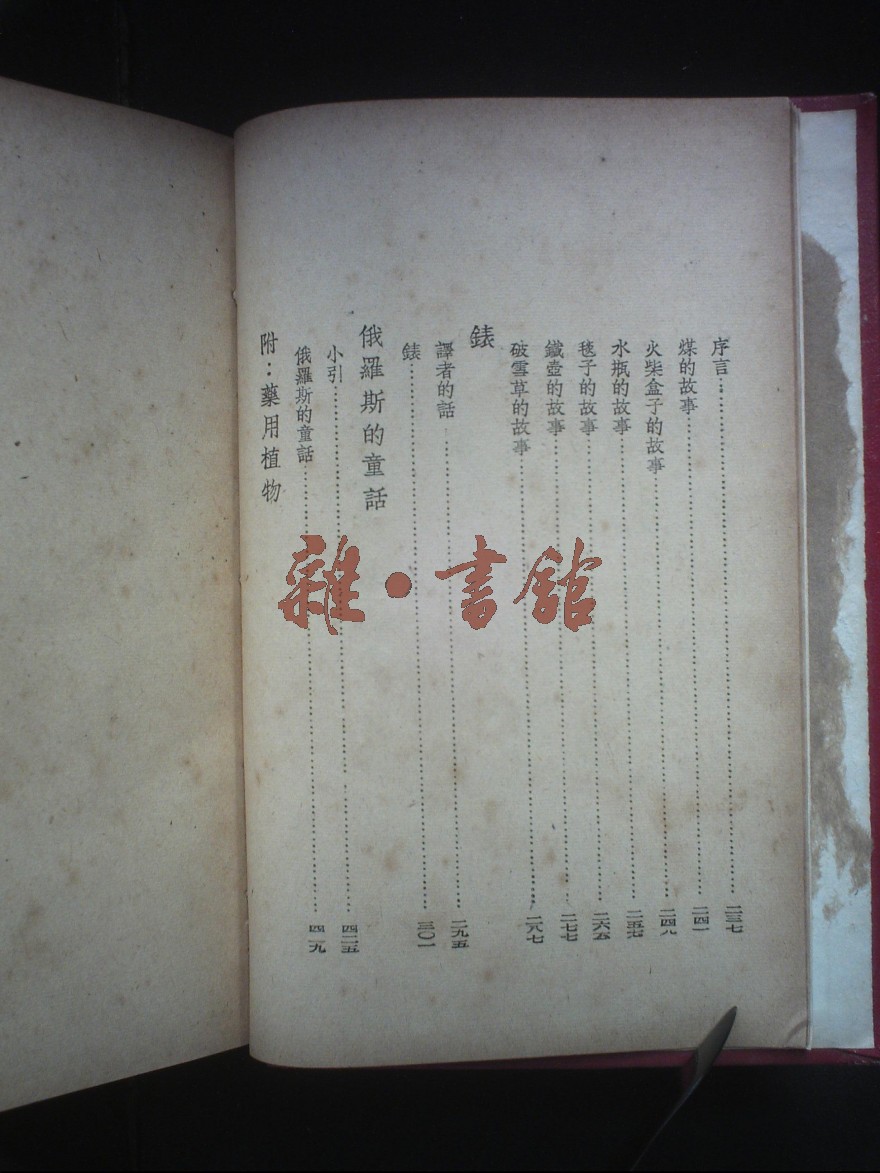 序言……二三七
煤的故事……二四一
火柴盒子的故事……二四八
水瓶的故事……二五七
毯子的故事……二六五
鐵壺的故事……二七七
破雪草的故事……二八七
錶
譯者的話……二九五
錶……三〇一
俄羅斯的童話
小引……四二五
俄羅斯的童話……四二九
附：藥用植物
雜·書館